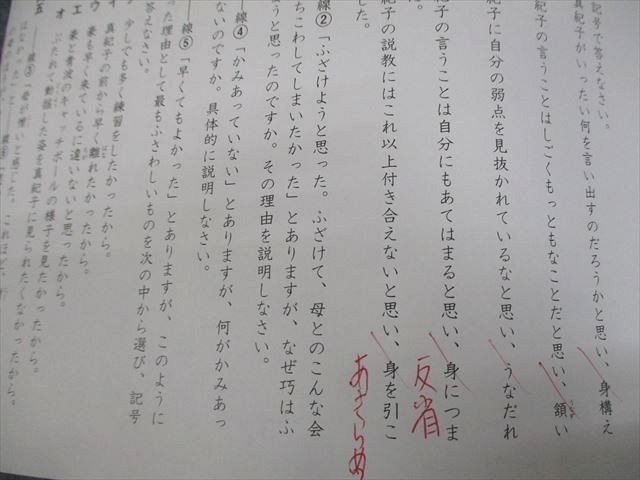 記号で答えなさい。
真紀子がいったい何を言い出すのだろうかと思い、身構え
紀子の言うことはしごくもっともなことだと思い、頷い
うなず
紀子に自分の弱点を見抜かれているなと思い、うなだれ
紀子の言うことは自分にもあてはまると思い、身につま
反省
紀子の説教にはこれ以上付き合えないと思い、身を引こ
あきらめ
した。
線②「ふざけようと思った。ふざけて、母とのこんな会
ちこわしてしまいたかった」とありますが、なぜ巧はふ
うと思ったのですか。その理由を説明しなさい。
線④「かみあっていない」とありますが、何がかみあっ
ないのですか。具体的に説明しなさい。
線⑤「早くてもよかった」とありますが、このように
った理由として最もふさわしいものを次の中から選び、記号
答えなさい。
少しでも多く練習をしたかったから。
イ 真紀子の前から早く離れたかったから。
ウ 豪も早く来ているに違いないと思ったから。
エ 豪と青波のキャッチボールの様子を見たかったから。
オ ぶたれて動揺した姿を真紀子に見られたくなかったから。
五
線③